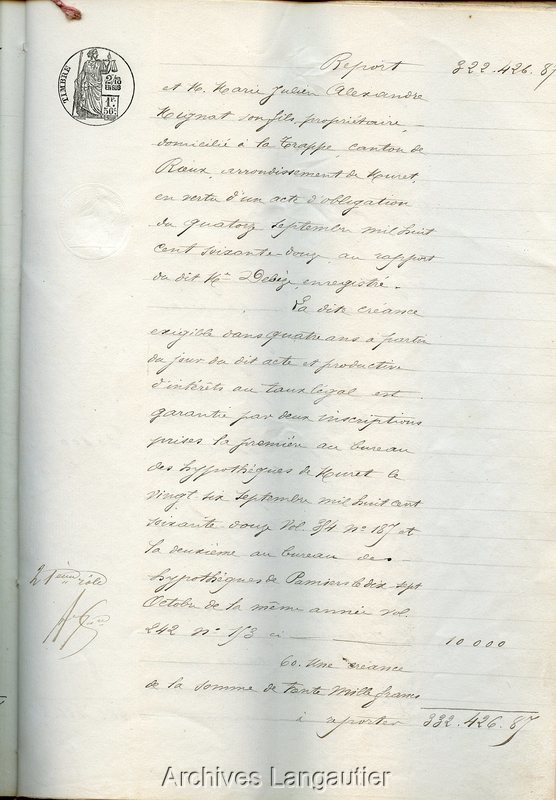 TIMBRE
2/10
EN SUS
1F
50c
Report 322.426.87
et M. Marie Julien Alexandre
Mignat son fils, propriétaire,
domicilié à la Trappe, canton de
Rieux, arrondissement de Muret,
en vertu d'un acte d'obligation
du quatorze septembre mil huit
cent soixante-douze, au rapport
du dit Me enregistré.
La dite créance
exigible dans quatre ans a partir
du jour du dit acte et productive
d'intérêts au taux légal est
garantie par deux inscriptions
prises la première au bureau
des hypothèques de Muret le
vingt six septembre mil huit cent
soixante douze Vol. 314. No 187 et
la deuxième au bureau des
hypothèques de Pamiers le dix sept
Octobre de la même année vol.
242 No 113 ci 10 000
60. Une créance
de la somme de trente mille francs
à reporter 332.426.87
21ème rôle
Archives Langautier